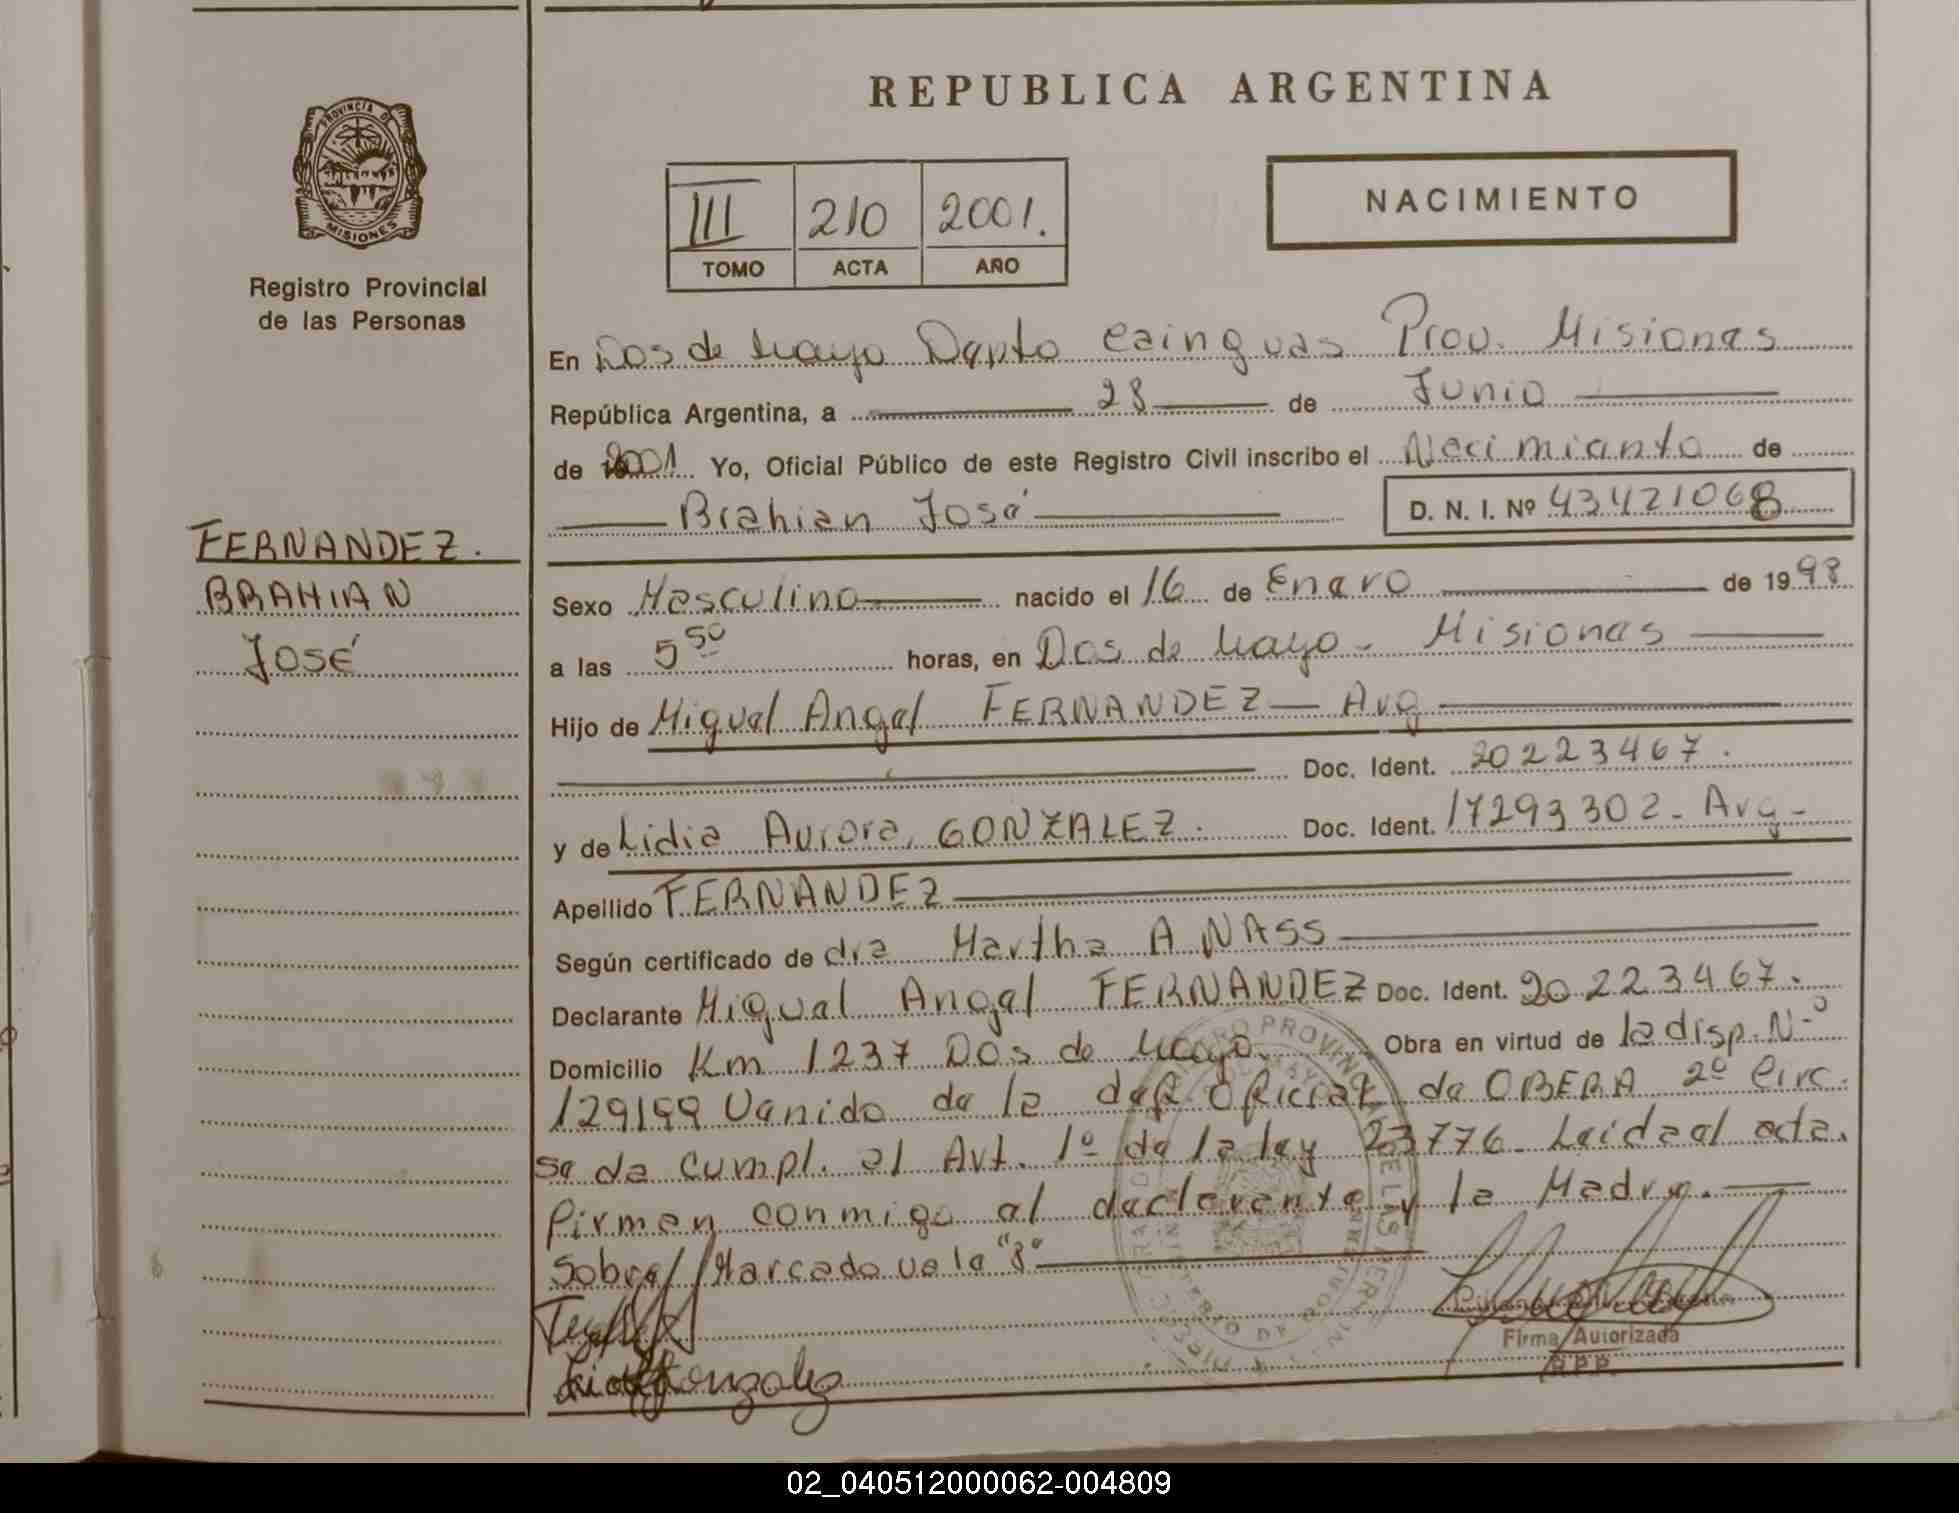 REPUBLICA ARGENTINA
PROVINCIA D
MISIONES
Registro Provincial
de las Personas
III 210 2001.
TOMO ACTA AÑO
NACIMIENTO
En Dos de Mayo Depto Cainguas Prov. Misiones
República Argentina, a 28 de Junio
de 2001 Yo, Oficial Público de este Registro Civil inscribo el Nacimiento de
Brahian José D. N. I. Nº 43421068
FERNANDEZ.
BRAHIAN
José
Sexo Masculino nacido el 16 de Enero de 1998
a las 5 50 horas, en Dos de Mayo - Misiones
Hijo de Miguel Angel FERNANDEZ — Arg
Doc. Ident. 20223467.
y de Lidia Aurora GONZALEZ. Doc. Ident. 17293302 - Arg -
Apellido FERNANDEZ
Según certificado de dra Martha A NASS
Declarante Miguel Angel FERNANDEZ Doc. Ident. 20223467.
Domicilio Km 1237 Dos de Mayo. Obra en virtud de la disp. Nº
129199 Venida de la def. Oficial de OBERA 2º Circ.
se da cumpl. al Art. 1º de la ley 23776 - Leida el acta.
firman conmigo el declarante y la Madre. —
Sobre/Marcado vale "8"
Gonzalez
Firma Autorizada
R.P.P.
02_040512000062-004809